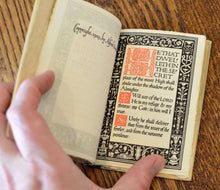 Copyright, 1900, by
HE THAT
DWEL
LETH IN
THE SE
CRET
place of the most High shall
abide under the shadow of the
Almighty
I Will say of the LORD
He is my refuge & my for
tress my God; in him will I
trust
Surely he shall deliver
thee from the snare of the
fowler, and from the noisome
pestilence